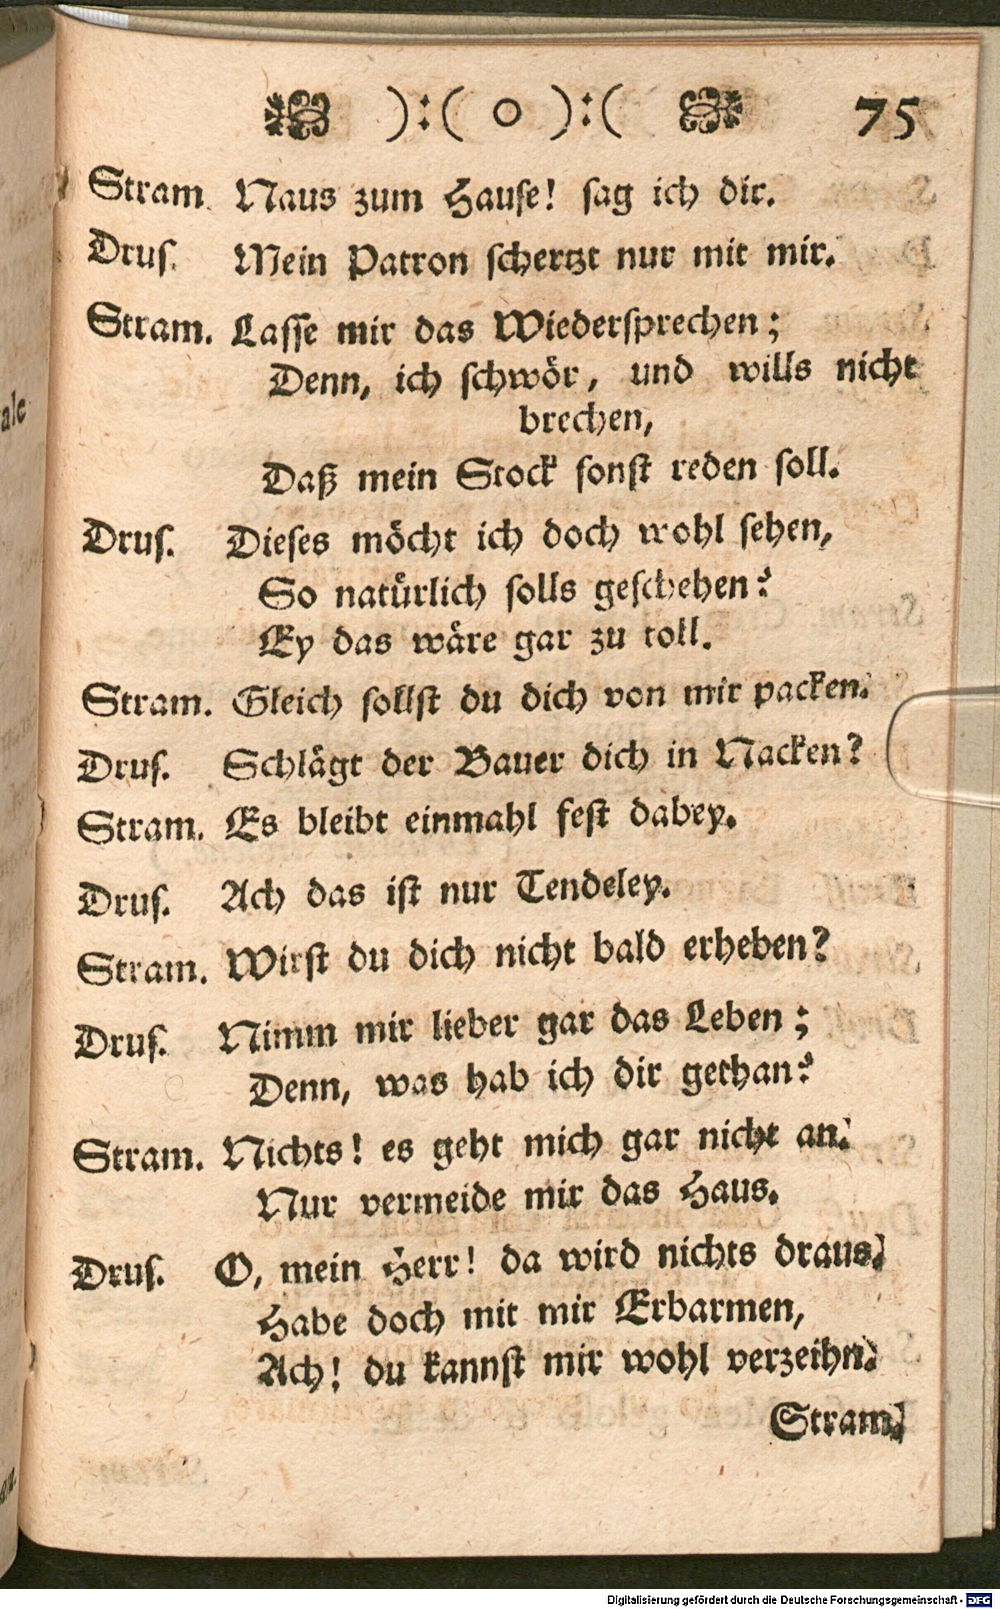 ):( o ):( 75
Stram. Naus zum Hause! sag ich dir.
Drus. Mein Patron schertzt nur mit mir.
Stram. Lasse mir das Wiedersprechen;
Denn, ich schwör, und wills nicht
brechen,
Daß mein Stock sonst reden soll.
Drus. Dieses möcht ich doch wohl sehen,
So natürlich solls geschehen?
Ey das wäre gar zu toll.
Stram. Gleich sollst du dich von mir packen.
Drus. Schlägt der Bauer dich in Nacken?
Stram. Es bleibt einmahl fest dabey.
Drus. Ach das ist nur Tendeley.
Stram. Wirst du dich nicht bald erheben?
Drus. Nimm mir lieber gar das Leben;
Denn, was hab ich dir gethan?
Stram. Nichts! es geht mich gar nicht an.
Nur vermeide mir das Haus.
Drus. O, mein Herr! da wird nichts draus.
Habe doch mit mir Erbarmen,
Ach! du kannst mir wohl verzeihn.
Stram.
Digitalisierung gefördert durch die Deutsche Forschungsgemeinschaft - DFG